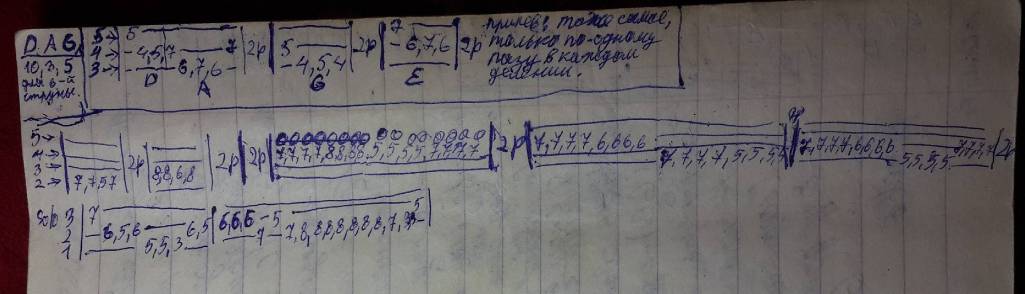 D. A G. 5→ 5 7 припев: тоже самое,
10, 3, 5 4→ -4,5,7 7 2р 5 2р -6,7,6 2р только по одному
для 6-й 3→ 6,7,6- -4,5,4 разу в каждом
струны. D A G E делении.
5→
4→ 7,7,7,7,8,8,8,8,5,5,5,5,7,7,7,7 2р 7,7,7,7,6,6,6,6 7,7,7,7,6,6,6,6
3→ 2р 2р 2р 7,7,7,7,5,5,5,5 5,5,5,5 2р
2→ 7,7 5 7 8,8,6,8
Solo 3 7
2 -6,5,6 6,5 6,6,6 -5 5
1 5,5,3 7 7,8,8,8,8,8,8,8,7